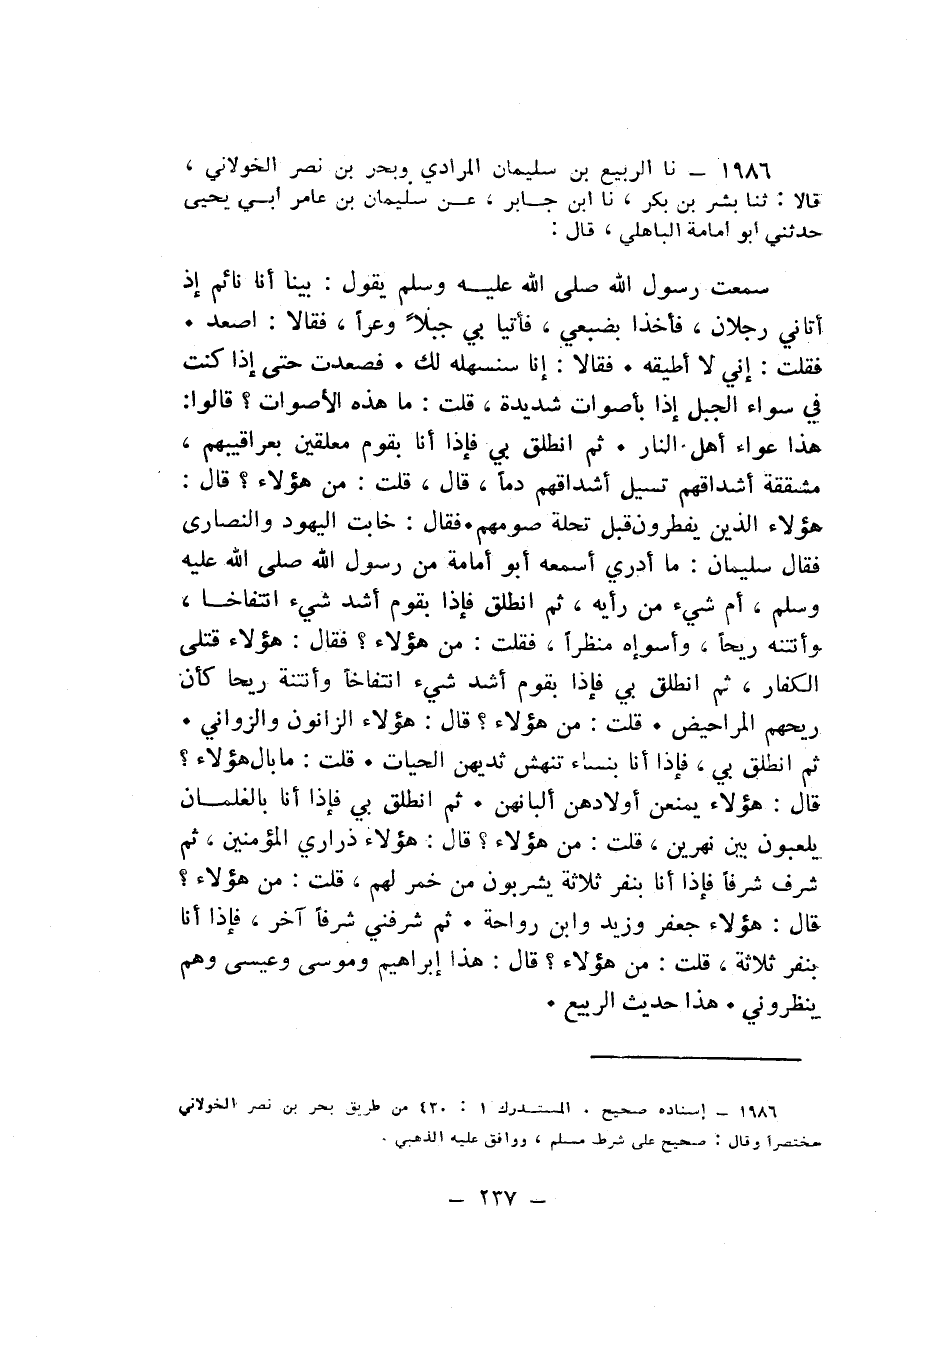 ١٩٨٦ – نا الربيع بن سليمان المرادي وبحر بن نصر الخولاني ،
قالا : ثنا بشر بن بكر ، نا ابن جابر ، عن سليمان بن عامر أبي يحيى
حدثني أبو أمامة الباهلي ، قال :
سمعت رسول الله صلى الله عليه وسلم يقول : بينا أنا نائم إذ
أتاني رجلان ، فأخذا بضبعي ، فأتيا بي جبلاً وعراً ، فقالا : اصعد .
فقلت : إني لا أطيقه . فقالا : إنا سنسهله لك . فصعدت حتى إذا كنت
في سواء الجبل إذا بأصوات شديدة ، قلت : ما هذه الأصوات ؟ قالوا:
هذا عواء أهل النار . ثم انطلق بي فإذا أنا بقوم معلقين بعراقيبهم ،
مشققة أشداقهم تسيل أشداقهم دماً ، قال ، قلت : من هؤلاء ؟ قال :
هؤلاء الذين يفطرون قبل تحلة صومهم . فقال : خابت اليهود والنصارى
فقال سليمان : ما أدري أسمعه أبو أمامة من رسول الله صلى الله عليه
وسلم ، أم شيء من رأيه ، ثم انطلق فإذا بقوم أشد شيء انتفاخا ،
وأنتنه ريحاً ، وأسوإه منظراً ، فقلت : من هؤلاء ؟ فقال : هؤلاء قتلى
الكفار ، ثم انطلق بي فإذا بقوم أشد شيء انتفاخاً وأنتنة ريحا كأن
ريحهم المراحيض . قلت : من هؤلاء ؟ قال : هؤلاء الزانون والزواني .
ثم انطلق بي ، فإذا أنا بنساء تنهش ثديهن الحيات . قلت : ما بال هؤلاء ؟
قال : هؤلاء يمنعن أولادهن ألبانهن . ثم انطلق بي فإذا أنا بالغلمان
يلعبون بين نهرين ، قلت : من هؤلاء ؟ قال : هؤلاء ذراري المؤمنين ، ثم
شرف شرفاً فإذا أنا بنفر ثلاثة يشربون من خمر لهم ، قلت : من هؤلاء ؟
قال : هؤلاء جعفر وزيد وابن رواحة . ثم شرفني شرفاً آخر ، فإذا أنا
بنفر ثلاثة ، قلت : من هؤلاء ؟ قال : هذا إبراهيم وموسى وعيسى وهم
ينظروني . هذا حديث الربيع .
١٩٨٦ – إسناده صحيح . المستدرك ١ : ٤٣٠ من طريق بحر بن نصر الخولاني
مختصراً وقال : صحيح على شرط مسلم ، ووافق عليه الذهبي .
– ٢٣٧ –